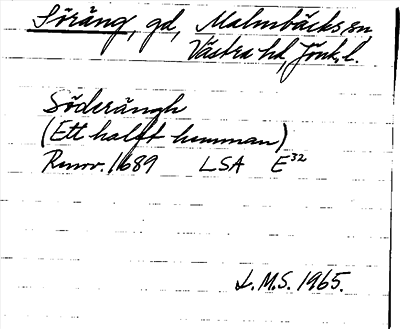 Söräng, gd, Malmbäcks sn,
Västra hd, Jönk. l.
Söderängh
(Ett halft hemman)
Renov. 1689 LSA E³²
L.M.S. 1965.